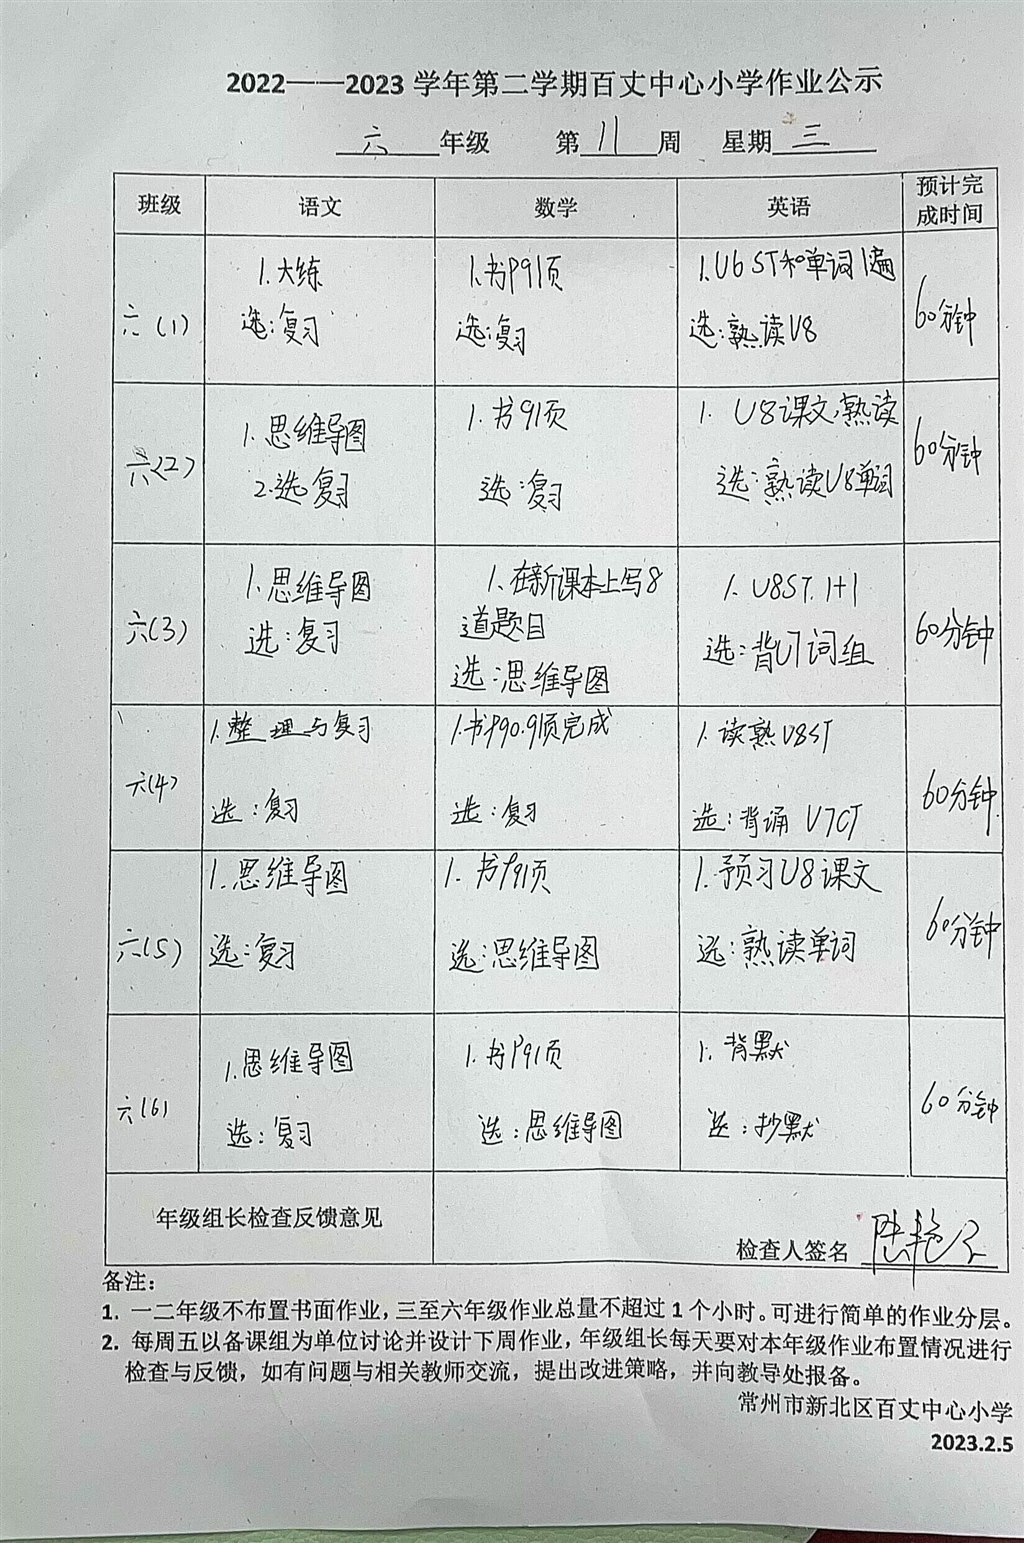 2022——2023 学年第二学期百丈中心小学作业公示
六 年级 第 11 周 星期 三
班级 语文 数学 英语 预计完
成时间
六(1)
1.大练
选:复习
1.书P91页
选:复习
1.U6 ST和单词1遍
选:熟读U8
60分钟
六(2)
1.思维导图
2.选复习
1.书91页
选:复习
1. U8课文,熟读
选:熟读U8单词
60分钟
六(3)
1.思维导图
选:复习
1、在新课本上写8
道题目
选:思维导图
1. U8ST. 1+1
选:背U7词组
60分钟
六(4)
1.整理与复习
选:复习
1.书P90.91页完成
选:复习
1.读熟U8ST
选:背诵 U7CT
60分钟
六(5)
1.思维导图
选:复习
1.书P91页
选:思维导图
1.预习U8课文
选:熟读单词
60分钟
六(6)
1.思维导图
选:复习
1.书P91页
选:思维导图
1.背默
选:抄默
60分钟
年级组长检查反馈意见
检查人签名
备注:
1. 一二年级不布置书面作业,三至六年级作业总量不超过 1 个小时。可进行简单的作业分层。
2. 每周五以备课组为单位讨论并设计下周作业,年级组长每天要对本年级作业布置情况进行
检查与反馈,如有问题与相关教师交流,提出改进策略,并向教导处报备。
常州市新北区百丈中心小学
2023.2.5